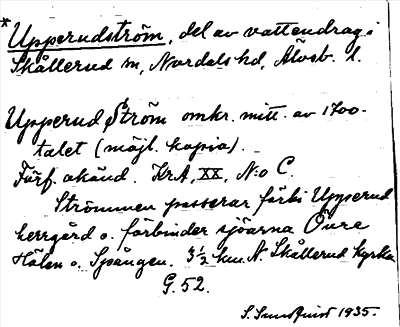 *Upperudström, del av vattendrag i
Skållerud sn, Nordals hd, Älvsb. l.
Upperud Ström omkr. mitt. av 1700-
talet (möjl. kopia).
Förf. okänd. KrA, XX, N:o C.
Strömmen passerar förbi Upperud
herrgård o. förbinder sjöarna Övre
Hölen o. Spången. 3½ km. N. Skållerud kyrka
G. 52.
S. Sundquist 1935.